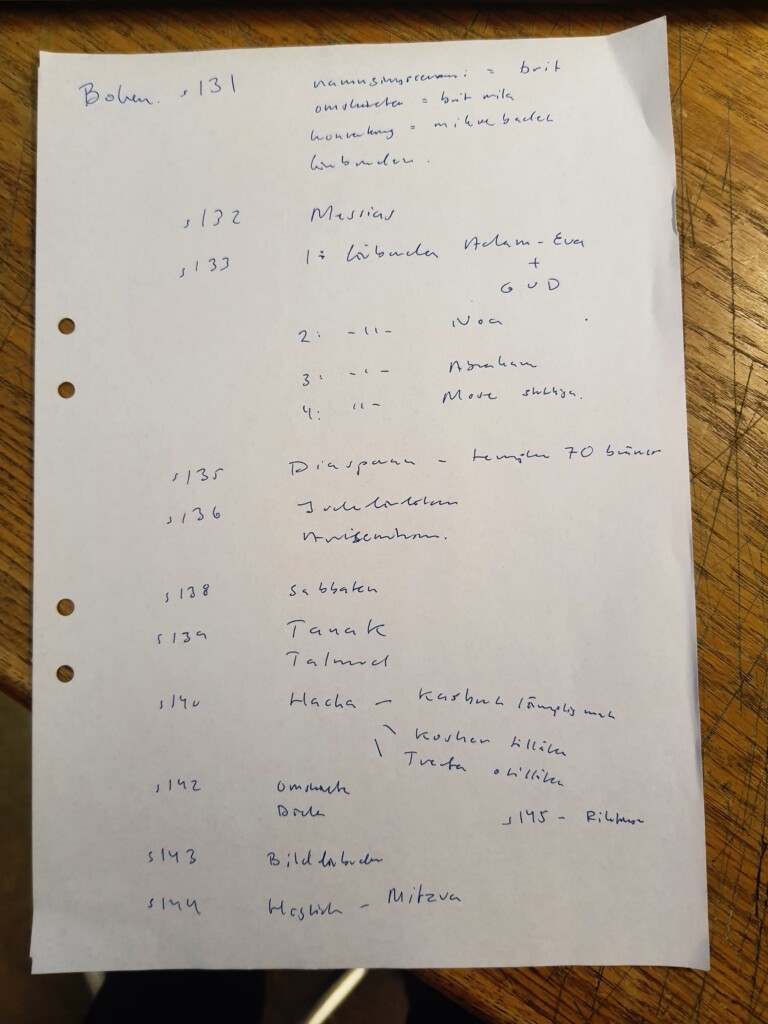 Boken. s131 namngivningsceremoni = brit
omskärelse = brit mila
= mikve badet
förbunden.
s132 Messias
s133 1: förbundet Adam - Eva
+
GUD
2: -"- Noa
3: -"- Abraham
4: "- Mose
s135 Diasporan - templen 70
s136 Judeförföljelser
Antisemitism.
s138 Sabbaten
s139 Tanak
Talmud
s140 - Kashrut lämplig mat
Kosher tillåten
Trefa otillåten
s142 Omskärelse
Döden
s145 -
s143 Bildförbudet
s144 - Mitzva